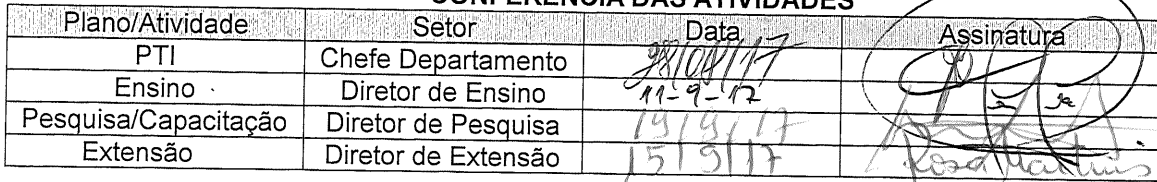 CONFERÊNCIA DAS ATIVIDADES
Plano/Atividade Setor Data Assinatura
PTI Chefe Departamento
Ensino Diretor de Ensino 11-9-17
Pesquisa/Capacitação Diretor de Pesquisa 19/9/17
Extensão Diretor de Extensão 15/9/17 Rosa Martins